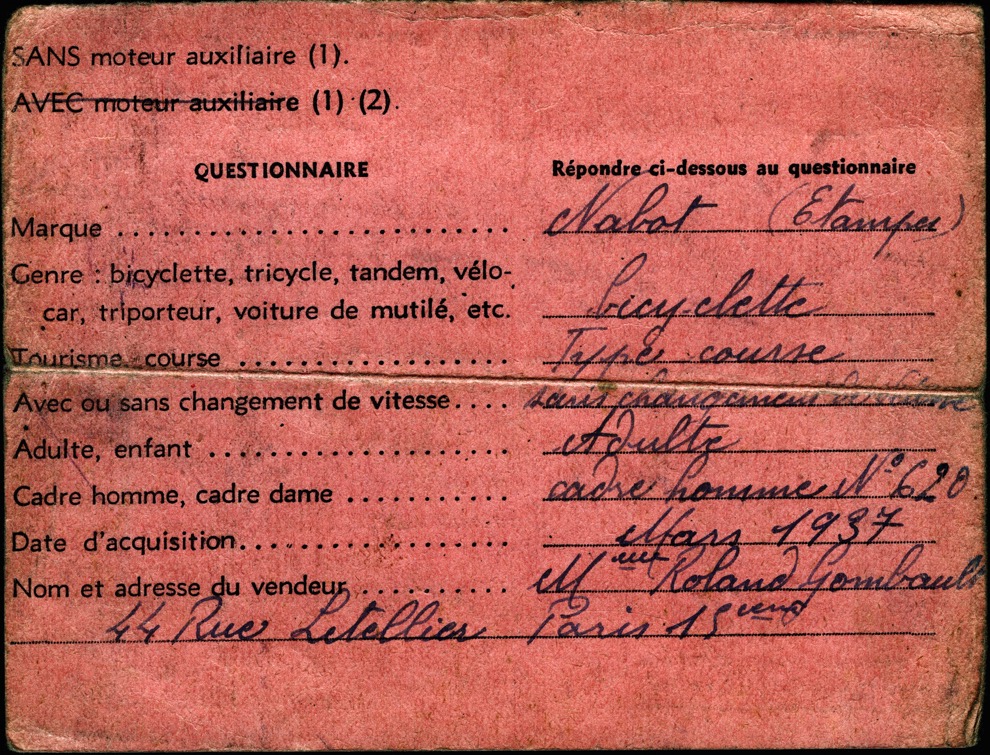 SANS moteur auxiliaire (1).
AVEC moteur auxiliaire (1) (2).
QUESTIONNAIRE Répondre ci-dessous au questionnaire
Marque .............................. Nabot (Etampes)
Genre : bicyclette, tricycle, tandem, vélo-
car, triporteur, voiture de mutilé, etc. bicyclette
Tourisme course .................... Type course
Avec ou sans changement de vitesse.... sans changement de vitesse
Adulte, enfant ...................... Adulte
Cadre homme, cadre dame ............ cadre homme N° 620
Date d'acquisition...................... Mars 1937
Nom et adresse du vendeur............ Mme Roland Gombault
44 Rue Letellier Paris 15ième